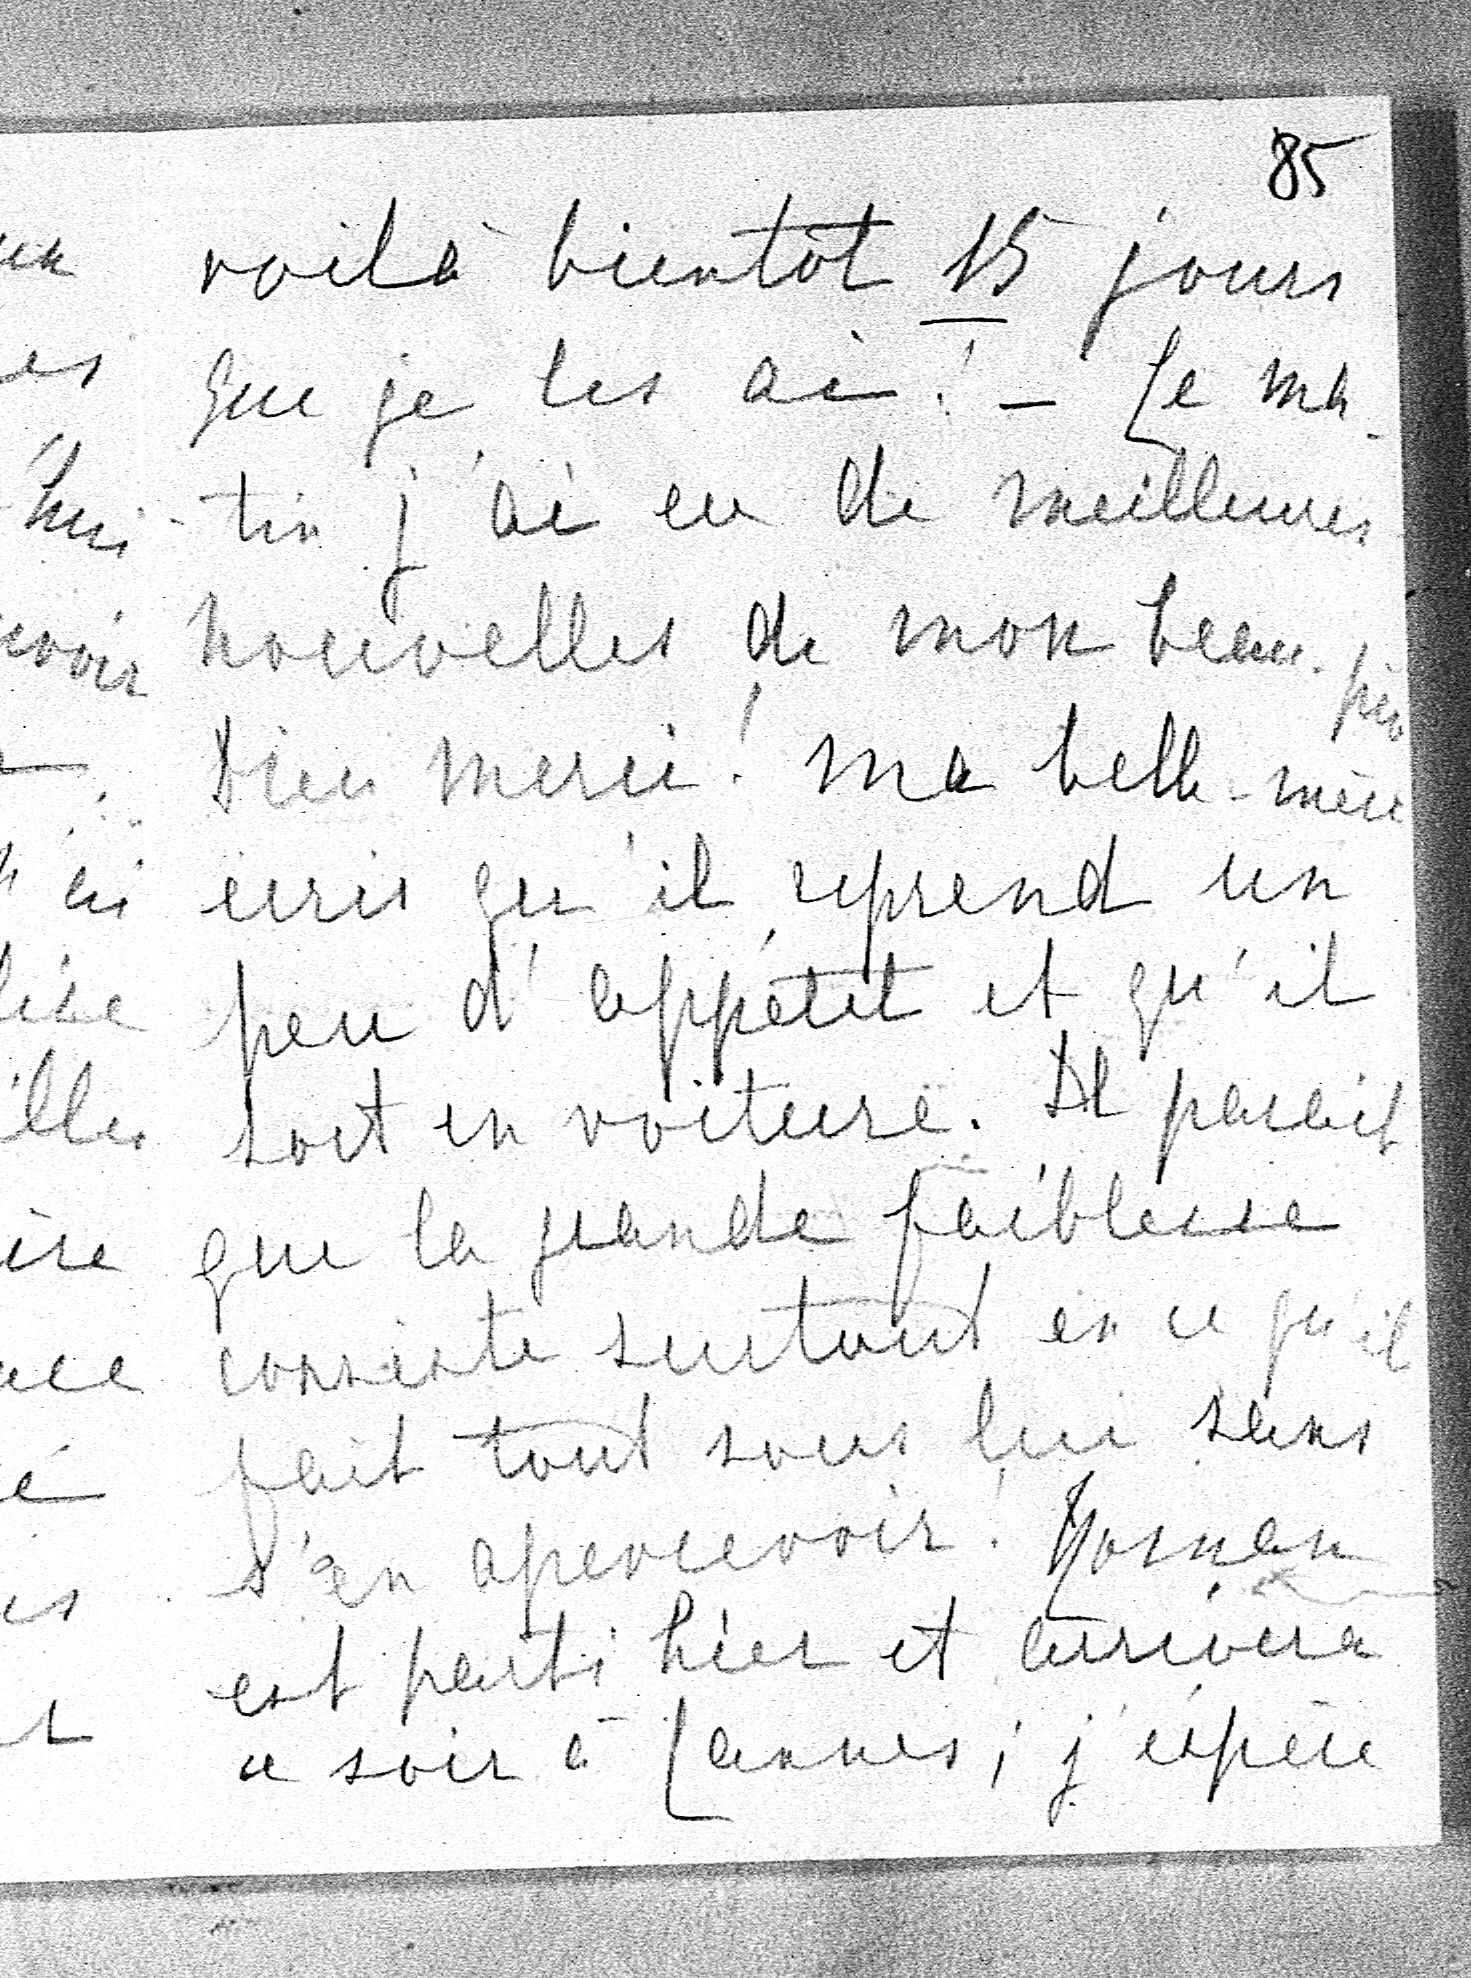 85
voilà bientôt 15 jours
que je les ai ! – Ce ma-
tin j'ai eu de meilleures
nouvelles de mon beau-père
Dieu merci ! ma belle-mère
écris qu'il reprend un
peu d'appétit et qu'il
sort en voiture. Il parait
que la grande faiblesse
consiste surtout en ce qu'il
fait tout sous lui sans
s'en apercevoir !
est parti hier et arrivera
ce soir à Cannes ; j'espère